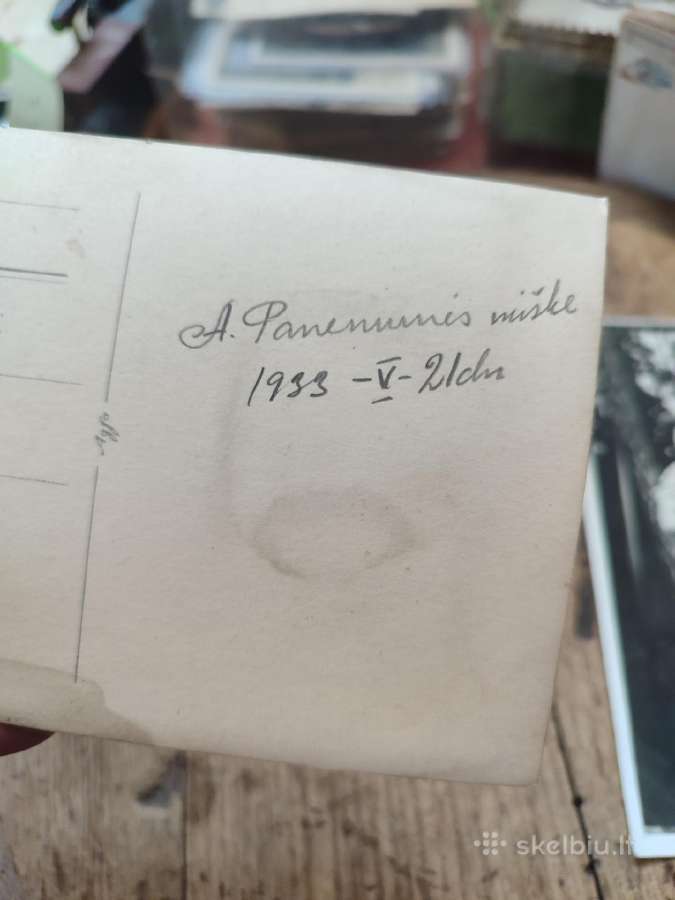 A. Panemunės miške
1933 -V- 21 dn
skelbiu.lt